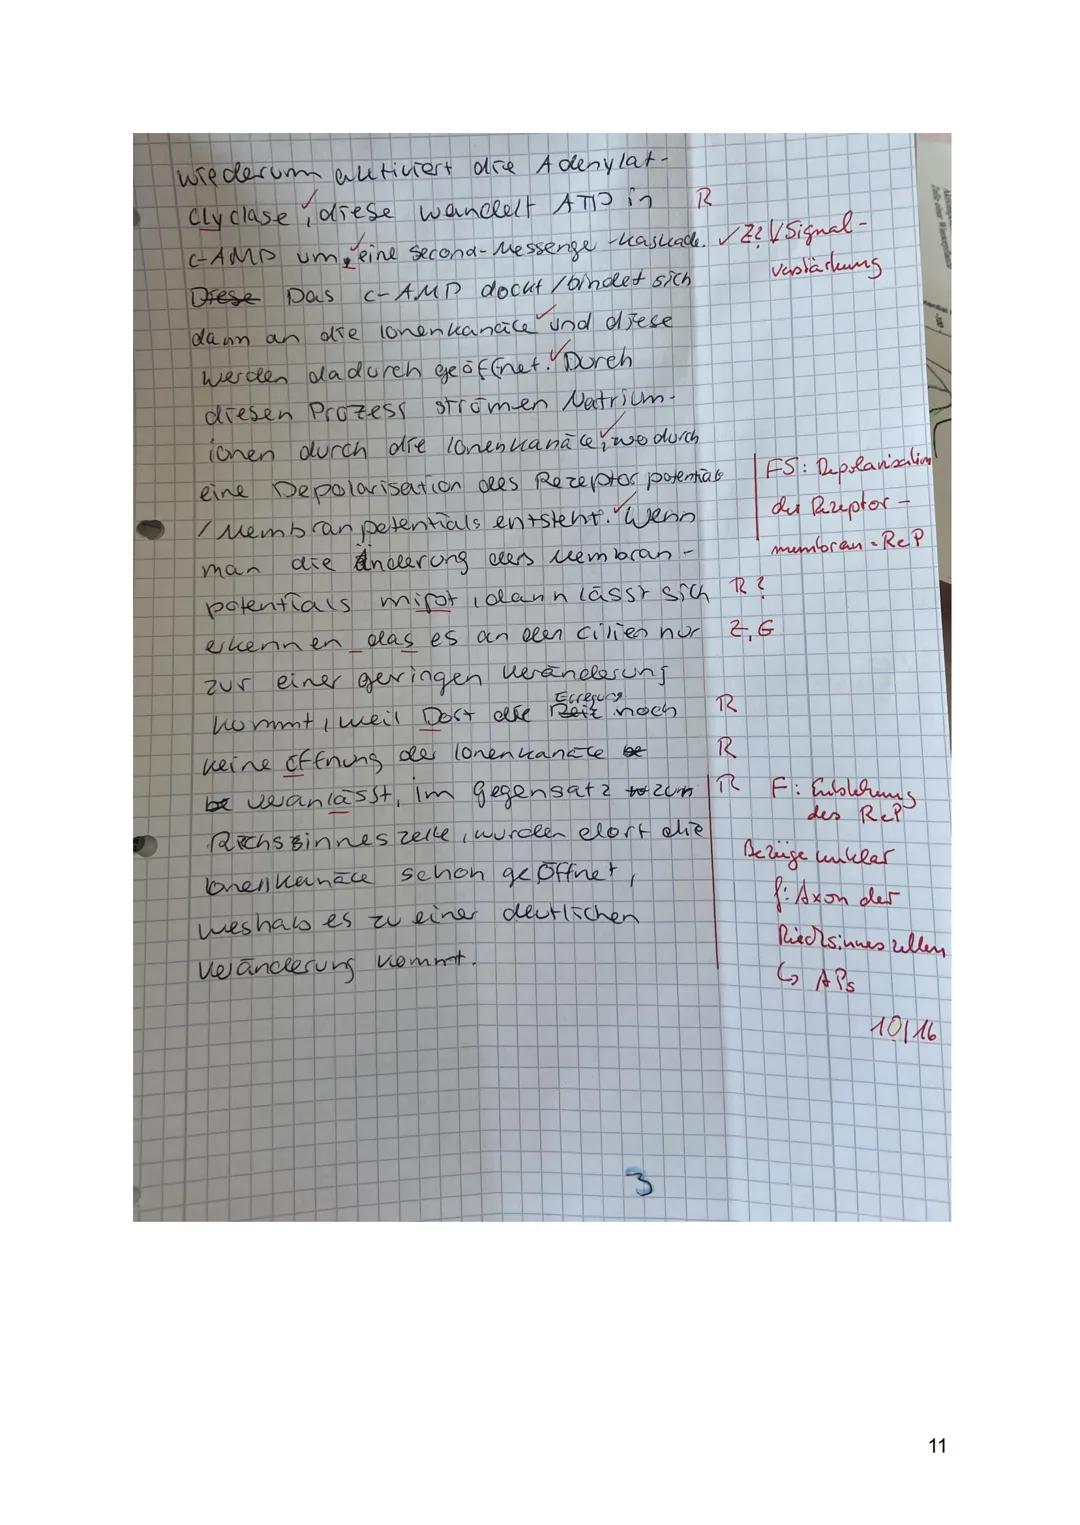 wiederum aktiviert die Adenylat-
Clyclase, diese wandelt ATP in R
c-AMP um, eine second-Messenge-Kaskade. ✓ Z? √ Signal-
verstärkung
Diese Das c-AMP dockt / bindet sich
dann an die Ionenkanäle und diese
werden dadurch geöffnet. Durch
diesen Prozess strömen Natrium-
ionen durch die Ionenkanäle, wodurch
eine Depolarisation des Rezeptorpotentials FS: Depolarisation
/ Membranpotentials entsteht. Wenn der Rezeptor-
man die Änderung des Membran- membran = ReP
potentials misst, dann lässt sich R?
erkennen das es an den Cilien nur Z, G
zur einer geringen Veränderung
kommt, weil Dort die Reiz Erregung noch R
keine Öffnung der Ionenkanäle be R
be veranlässt, im gegensatz to zum R F: Entstehung
des ReP
Riechsinneszelle, wurden dort die
Bezüge unklar
Ionenkanäle schon geöffnet,
f: Axon der
weshalb es zu einer deutlichen
Riechsinneszellen
Veränderung kommt.
↳ APs
10/16
3
11